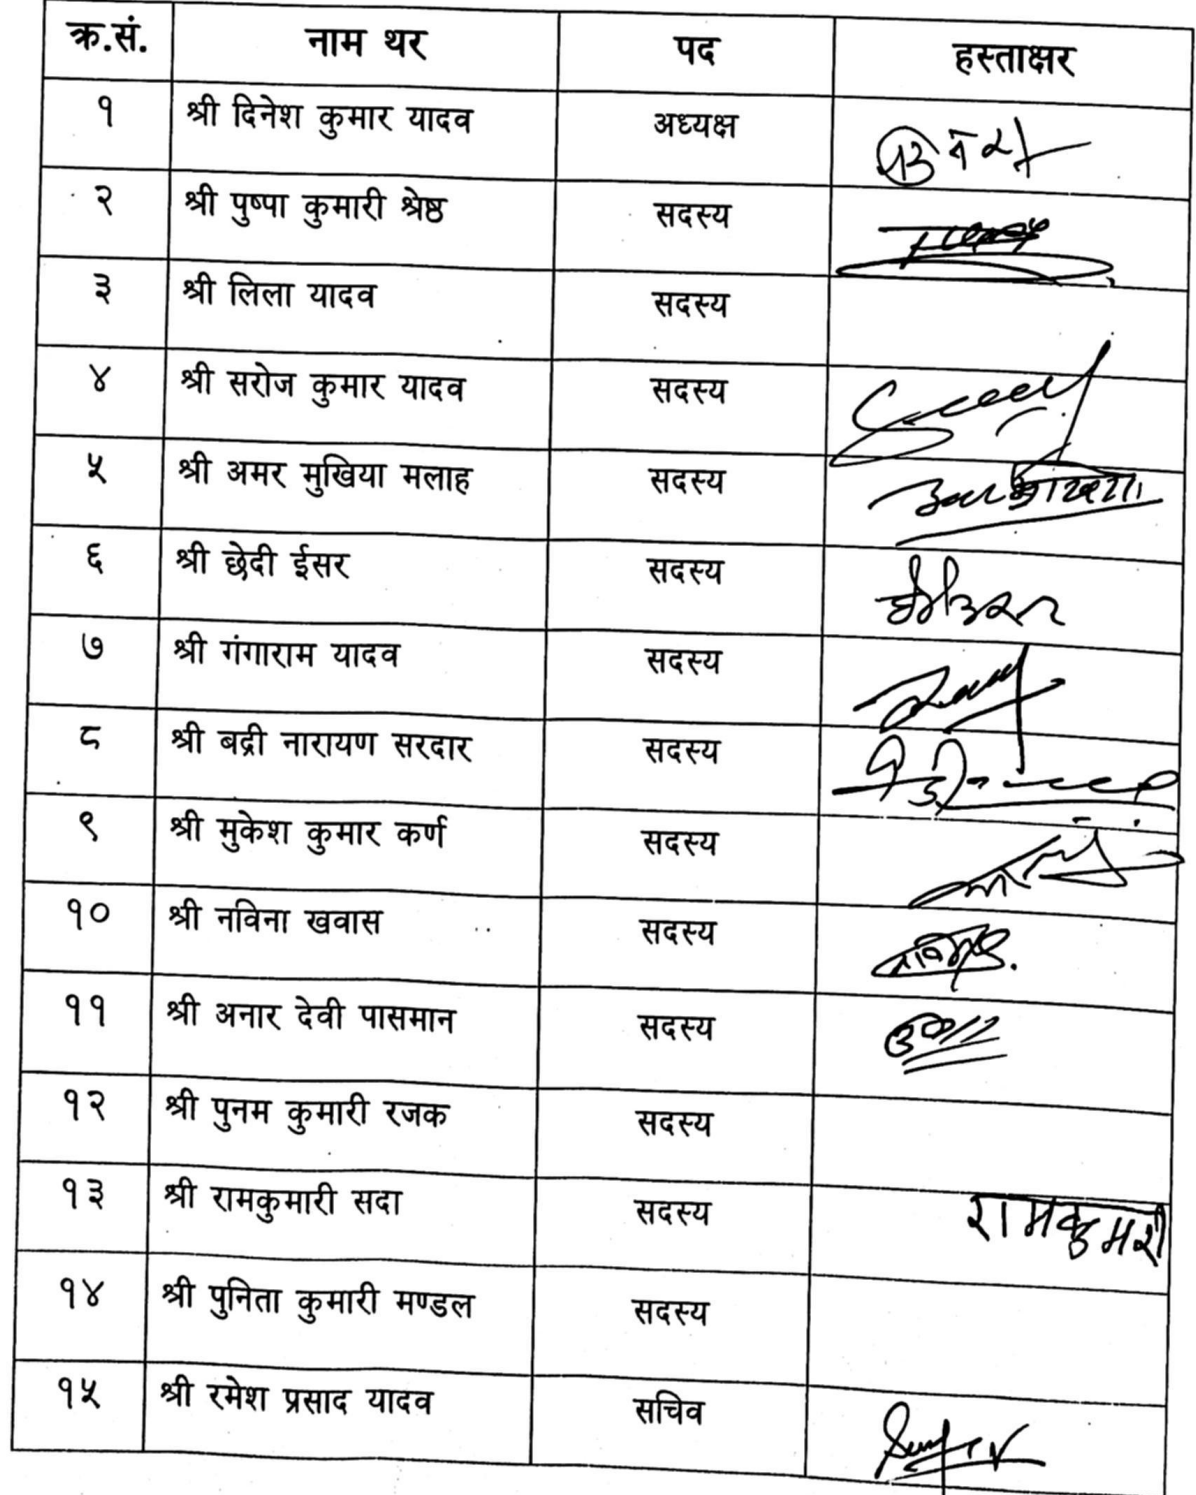 क्र.सं. नाम थर पद हस्ताक्षर
१ श्री दिनेश कुमार यादव अध्यक्ष
२ श्री पुष्पा कुमारी श्रेष्ठ सदस्य
३ श्री लिला यादव सदस्य
४ श्री सरोज कुमार यादव सदस्य
५ श्री अमर मुखिया मलाह सदस्य
६ श्री छेदी ईसर सदस्य
७ श्री गंगाराम यादव सदस्य
८ श्री बद्री नारायण सरदार सदस्य
९ श्री मुकेश कुमार कर्ण सदस्य
१० श्री नविना खवास सदस्य
११ श्री अनार देवी पासमान सदस्य
१२ श्री पुनम कुमारी रजक सदस्य
१३ श्री रामकुमारी सदा सदस्य रामकुमारी
१४ श्री पुनिता कुमारी मण्डल सदस्य
१५ श्री रमेश प्रसाद यादव सचिव